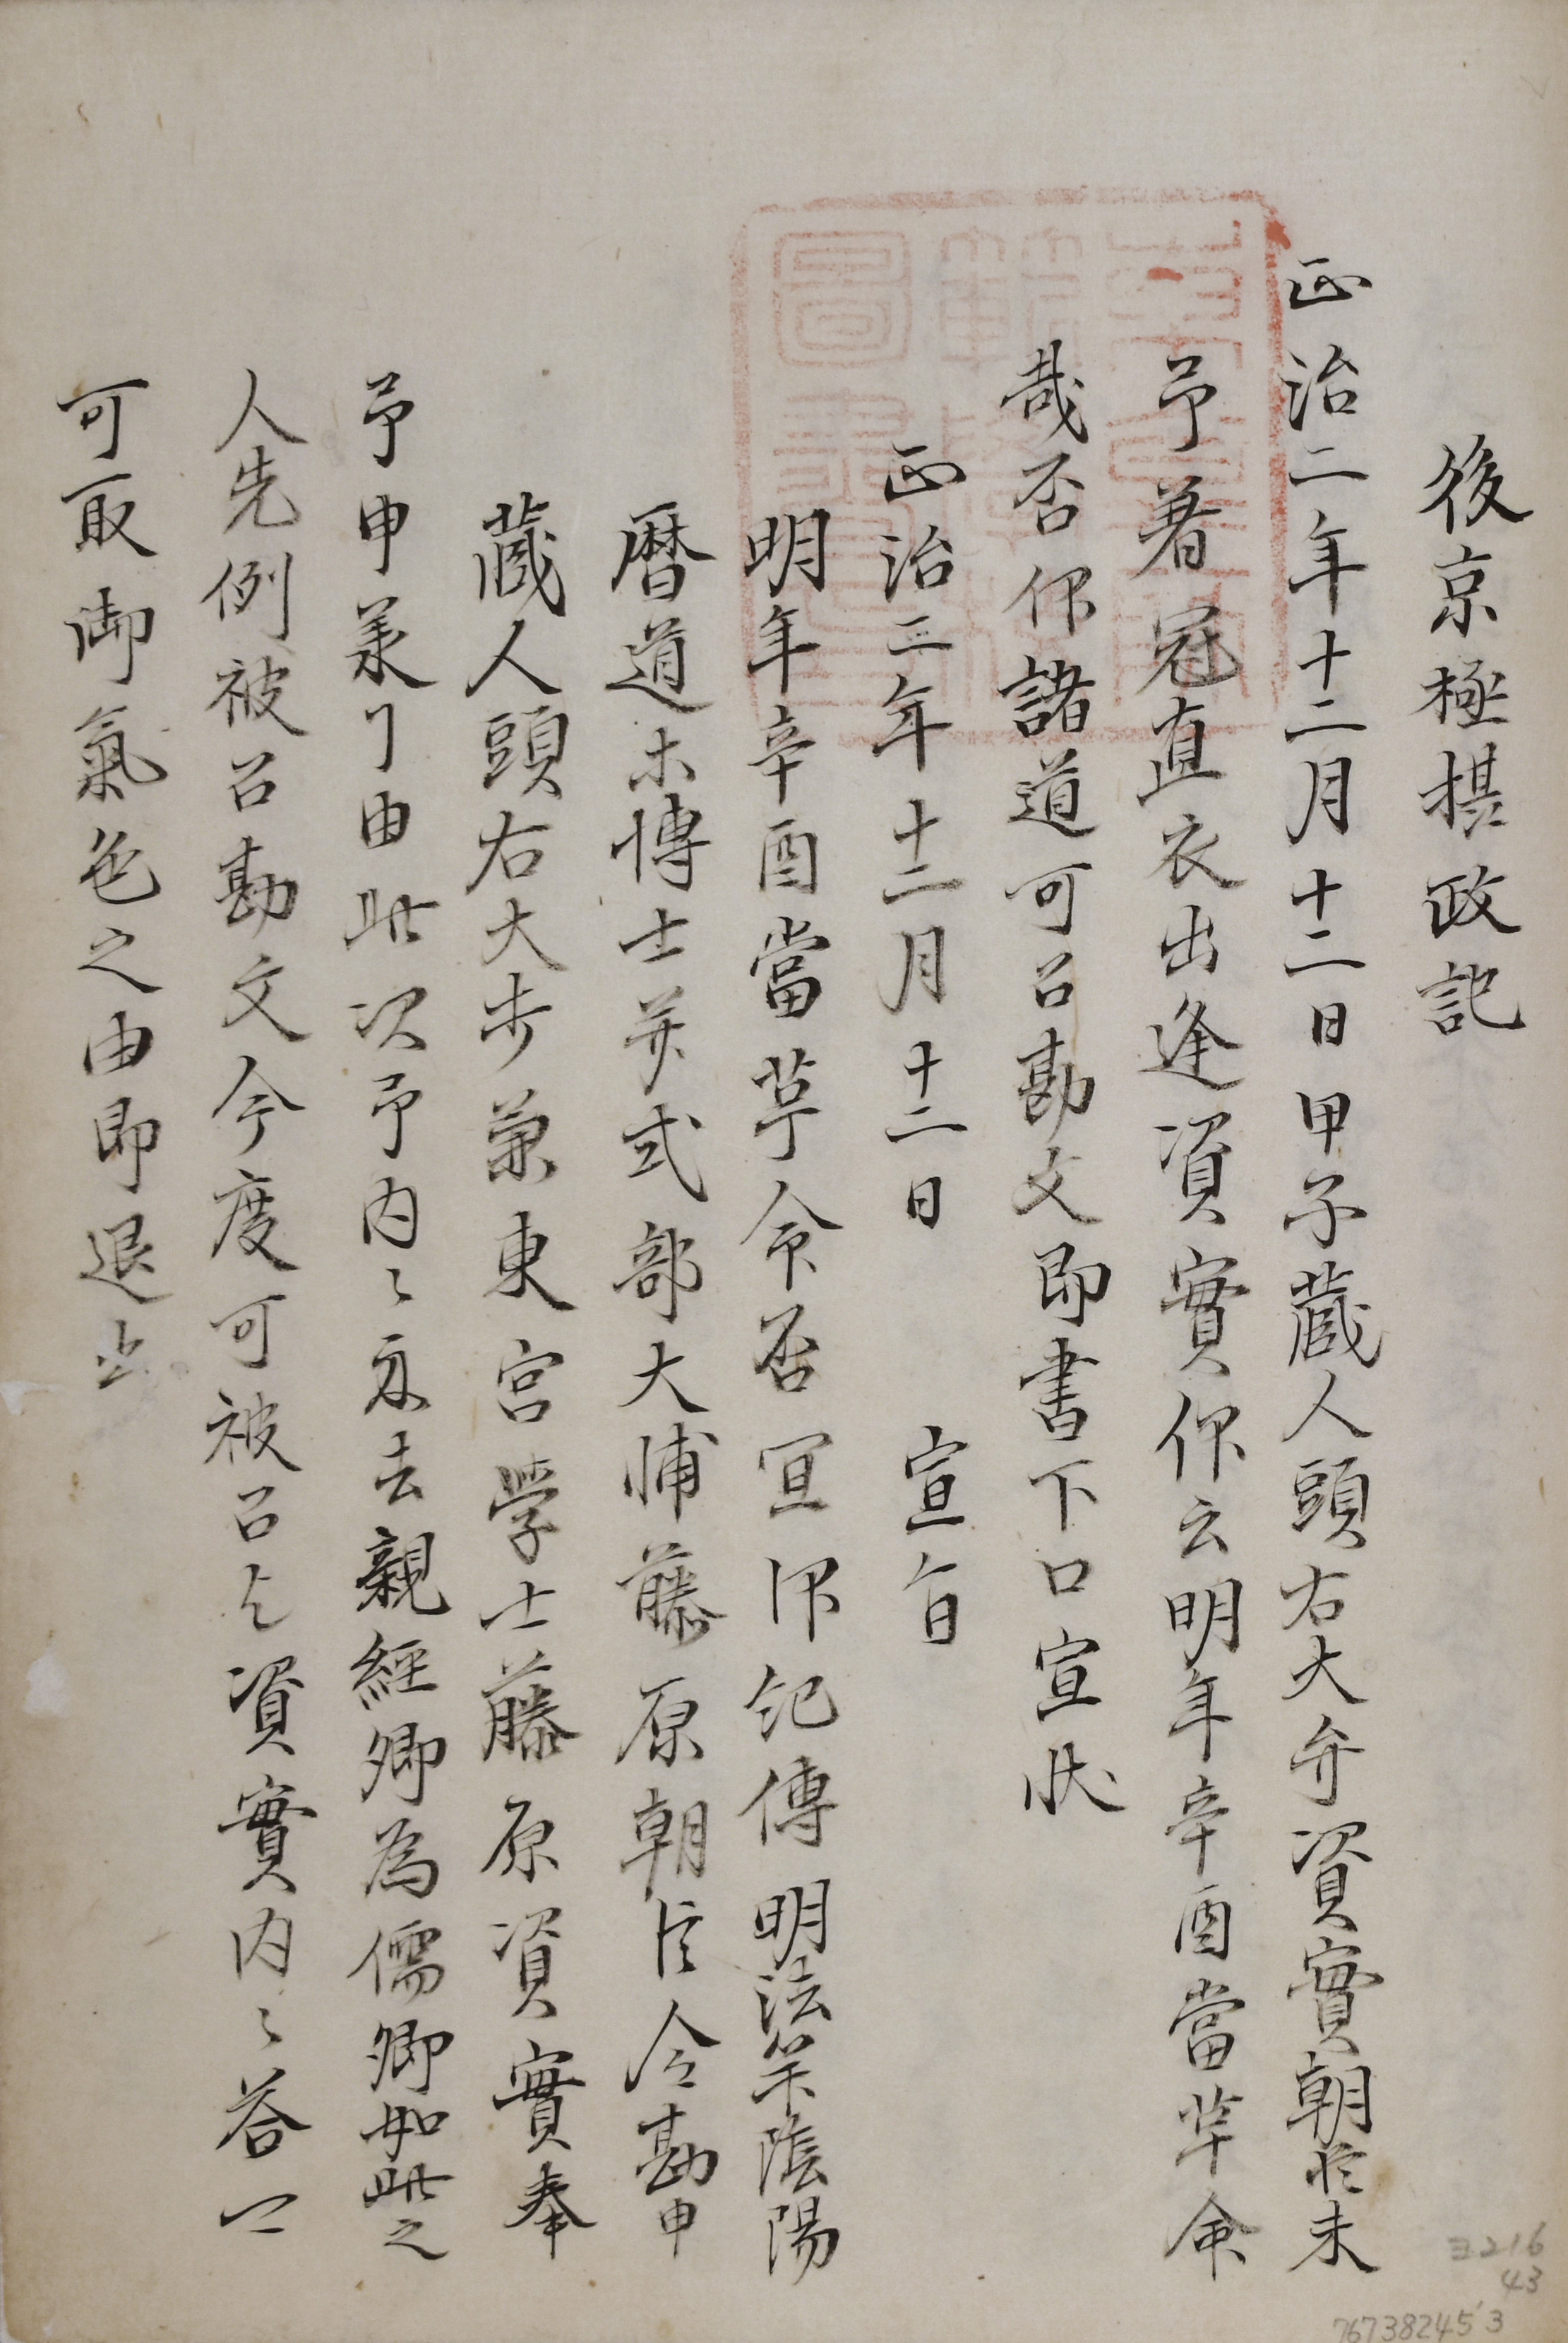 後京極摂政記
正治二年十二月十二日甲子蔵人頭右大弁資實朝臣来
予著冠直衣出逢資實仰云明年辛酉當革命
哉否仰諸道可召勘文即書下口宣状
正治二年十二月十二日 宣旨
明年辛酉當革命否宜仰紀傳明法算陰陽
暦道木博士并式部大輔藤原朝臣令勘申
蔵人頭右大弁兼東宮学士藤原資實奉
予申承了由此次予内々示云親経卿為儒卿如此之
人先例被召勘文今度可被召欤資實内々答云
可取御氣色之由即退出
ヨ216
43
767382453